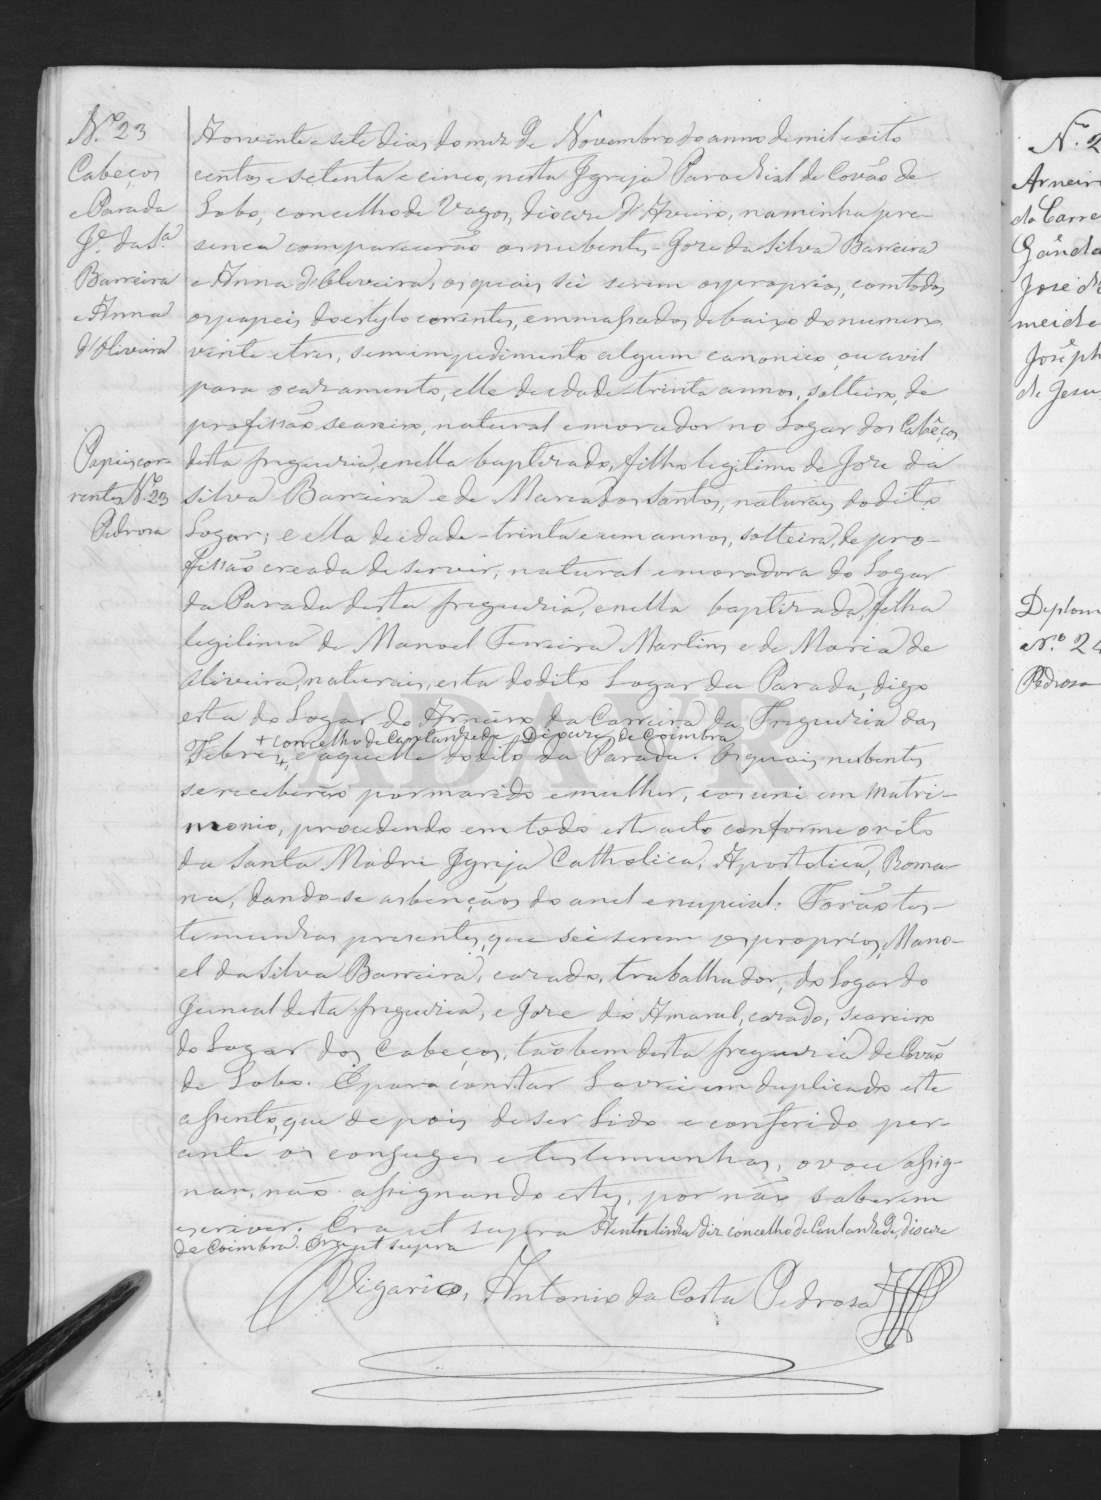 N.º 23
Cabeços
e Parada
Je. da Sa
Barreira
e Anna
d'Oliveira
Papeis cor-
rentes Nº 23
Pedrosa
Aos vinte e sete dias do mez de Novembro do anno de mil e oito
centos e setenta e cinco, nesta Igreja Parochial de Covão de
Lobo, concelho de Vagos, diocese d'Aveiro, na minha pre-
senca comparecerão os nubentes Joze da Silva Barreira
e Anna d'Oliveira, os quais sei serem os proprios, com todos
os papeis do estylo correntes, emmassados debaixo do numero
vinte e tres, sem impedimento algum canonico, ou civil
para o cazamento, elle de idade trinta annos, solteiro, de
profissão seareiro, natural e morador no Logar dos Cabêços
desta freguezia, e nella baptizado, filho legitimo de Joze da
Silva Barreira e de Maria dos Santos, naturaes do dito
Logar; e ella de idade trinta e um annos, solteira, de pro-
fissão creada de servir, natural e moradora do Logar
da Parada desta freguezia, e nella baptizada, filha
legitima de Manoel Ferreira Martins e de Maria de
Oliveira, naturais, esta do dito Logar da Parada, digo
esta do Logar do Arneiro da Carreira da Freguezia das
+ concelho de Cantanhede Diocese de Coimbra
Febres + e aquelle do dito da Parada. Os quais nubentes
se receberão por marido e mulher, e os uni em Matri-
monio, procedendo em todo este acto conforme o rito
da Santa Madre Igreja Catholica, Apostolica, Roma-
na, dando-se as bençãos do anel e nupcial. Forão tes-
temunhas presentes, que sei serem os proprios, Mano-
el da Silva Barreira, cazado, trabalhador, do Logar do
Juncal desta freguezia, e Joze do Amaral, cazado, seareiro
do Logar dos Cabeços, tãobem desta freguezia de Covão
de Lobo. E para constar Lavrei em duplicado este
assento, que depois de ser Lido e conferido per-
ante os conjuges e testemunhas, o vou assig-
nar, não assignando estes, por não saberem
escrever. Era ut supra A entrelinha diz concelho de Cantanhede, diocese
de Coimbra. Era ut supra
O Vigario, Antonio da Costa Pedrosa
N. 2
Arneiro
da Carre
Gânda
Joze d
meida e
Josêph
de Jesu
Diplom
Nº 24
Pedrosa
ADAVR